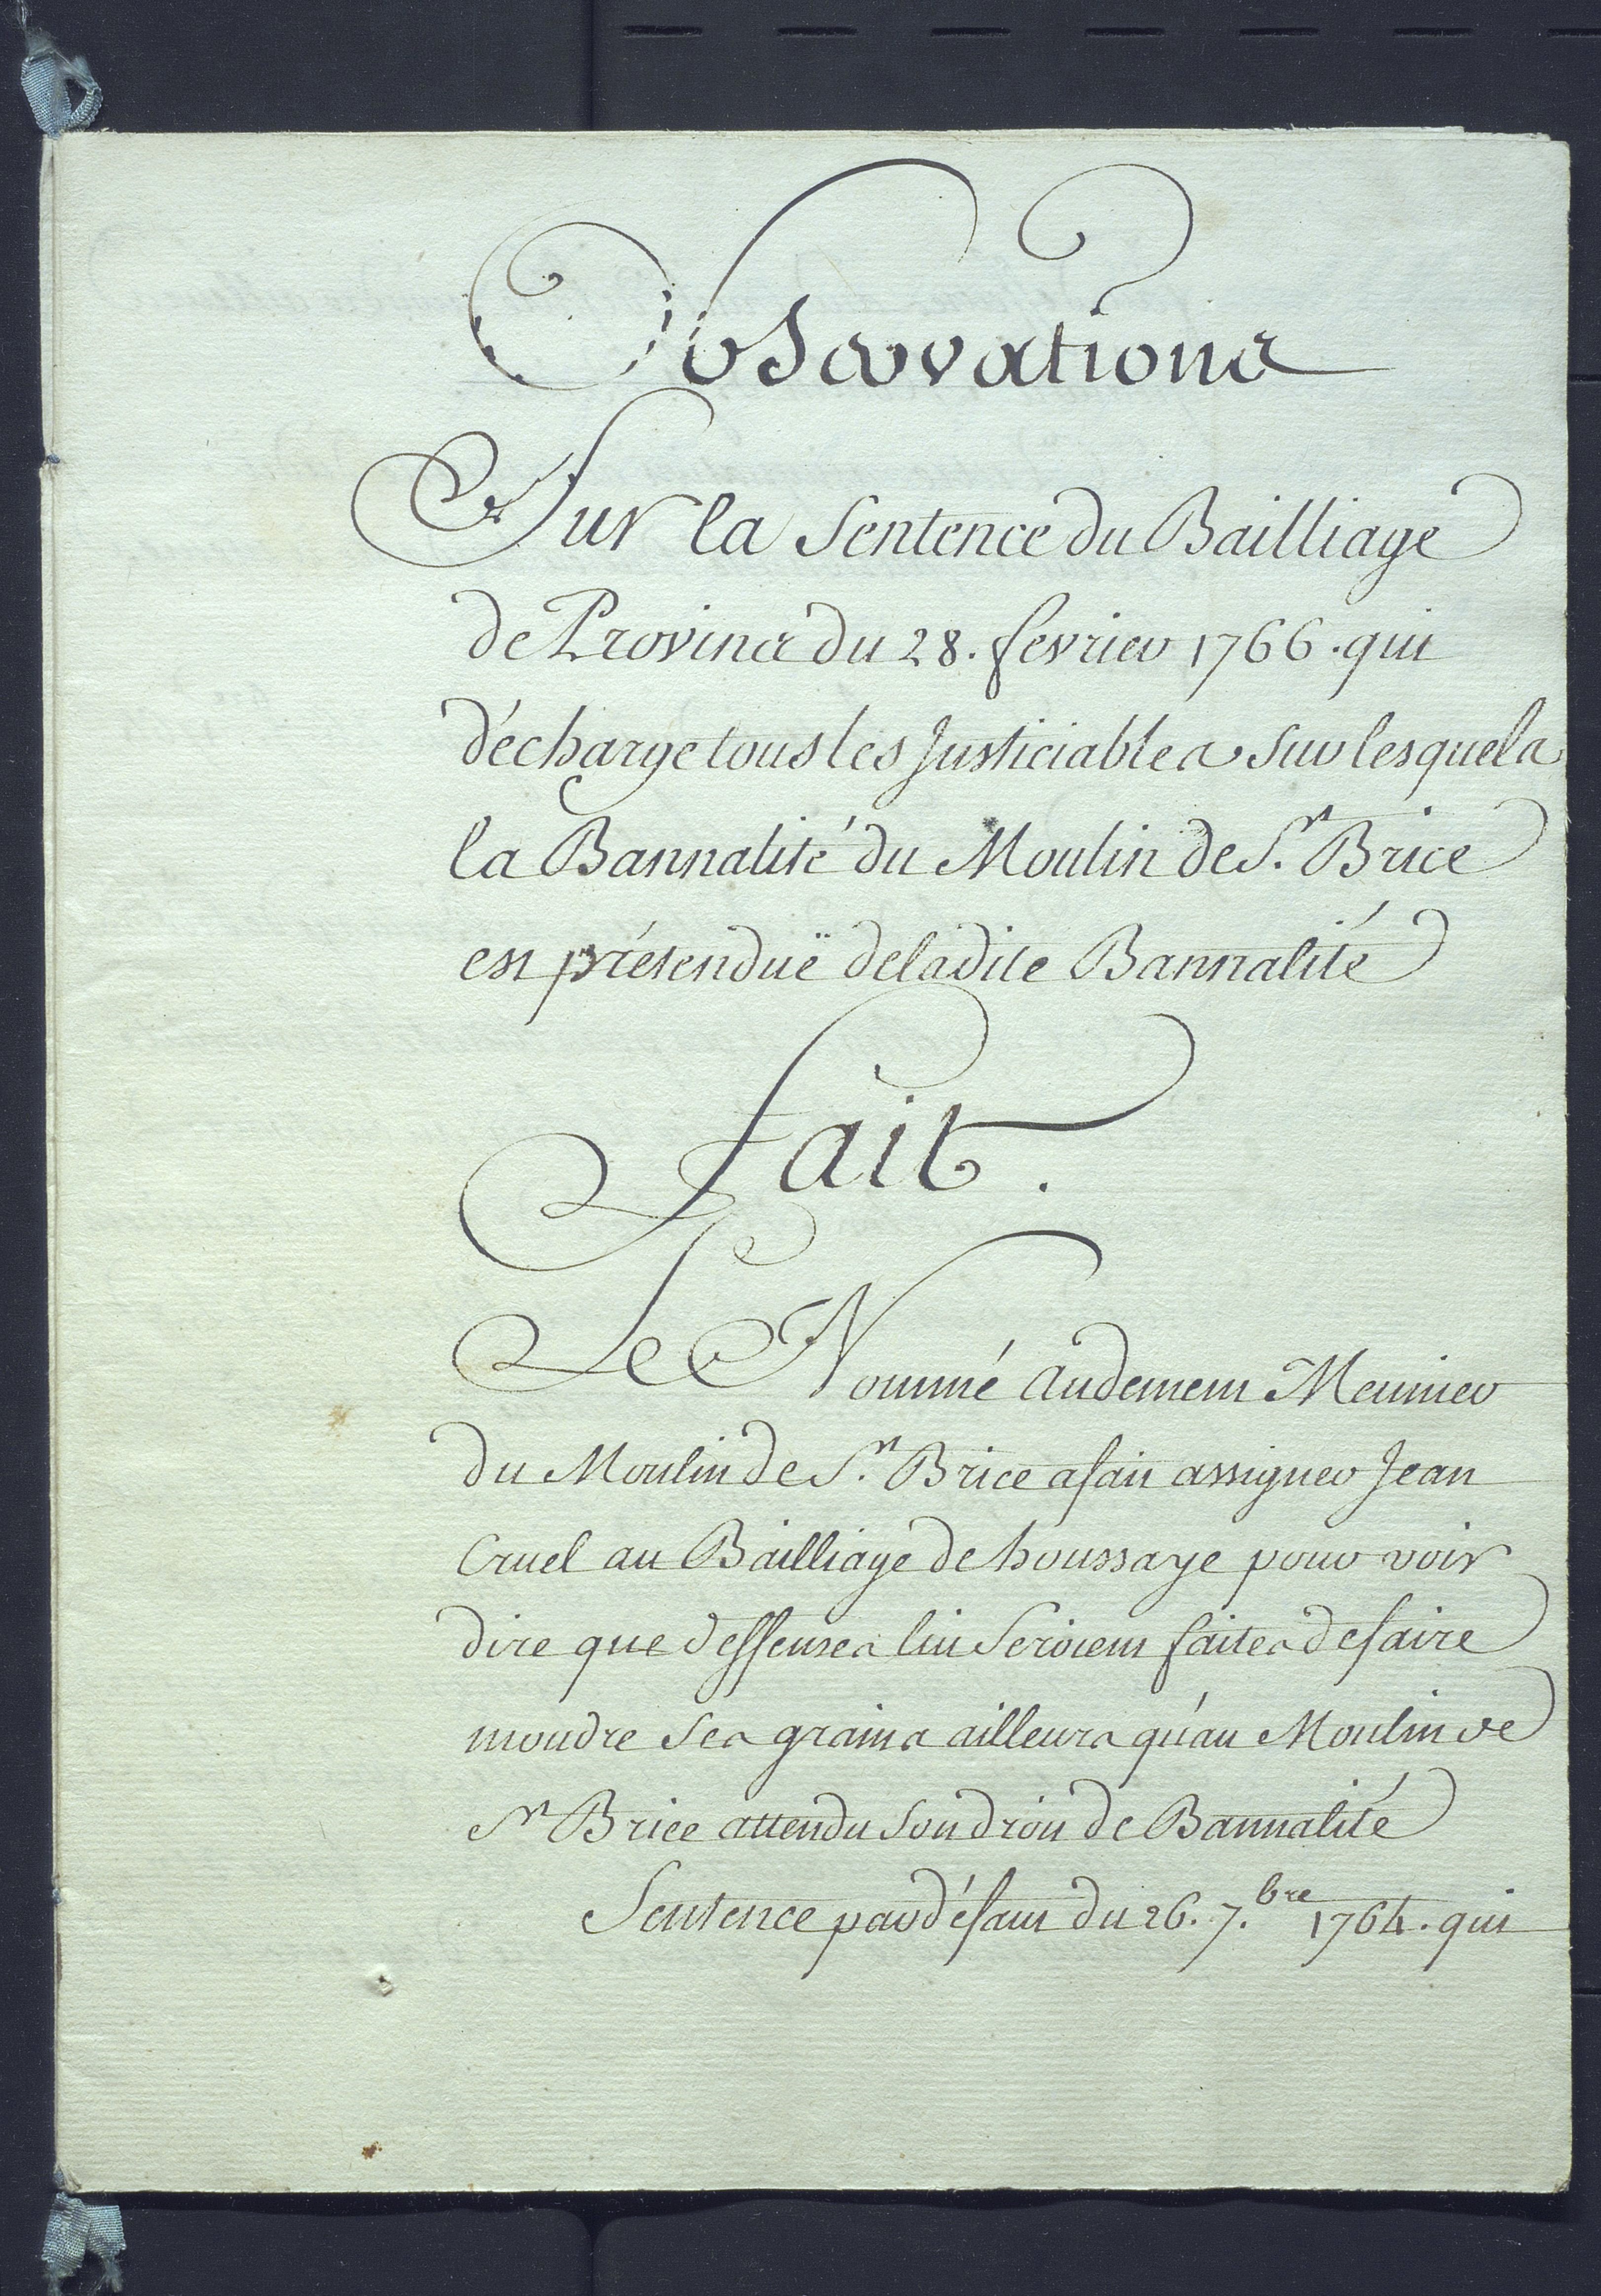 Observations
Sur la Sentence du Bailliage
de Provins du 28. fevrier 1766. qui
décharge tous les Justiciables sur lesquels
la Bannalité du Moulin de S.n Brice
est prétenduë deladite Bannalité
fait.
Le Nommé audement Meunier
du Moulin de S.n Brice a fait assigner Jean
Cruel au Bailliage de houssaye pour voir
dire que deffenses lui Seroient faites de faire
moudre Ses grains ailleurs qu'au Moulin de
Sn Brice attendu Son droit de Bannalité
Sentence par défaut du 26. 7.bre 1764. qui